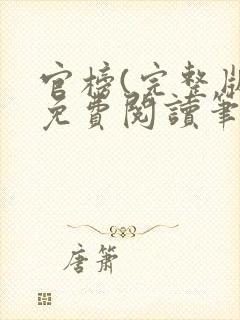 官榜(完整版
免費閱讀筆
唐簫